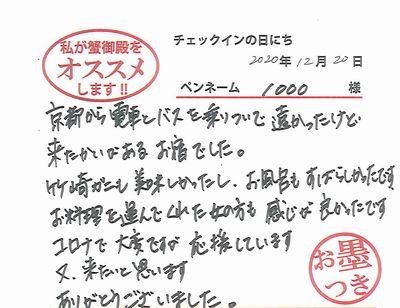 私が蟹御殿を
オススメ
します!!
チェックインの日にち
2020年12月20日
ペンネーム 1000 様
京都から電車とバスを乗りついで遠かったけど
来たかいがあるお宿でした。
竹崎がにも美味しかったし、お風呂もすばらしかったです
お料理を運んでくれた女の方も感じが良かったです
コロナで大変ですが応援しています
又、来たいと思います
ありがとうございました。
お墨
つき